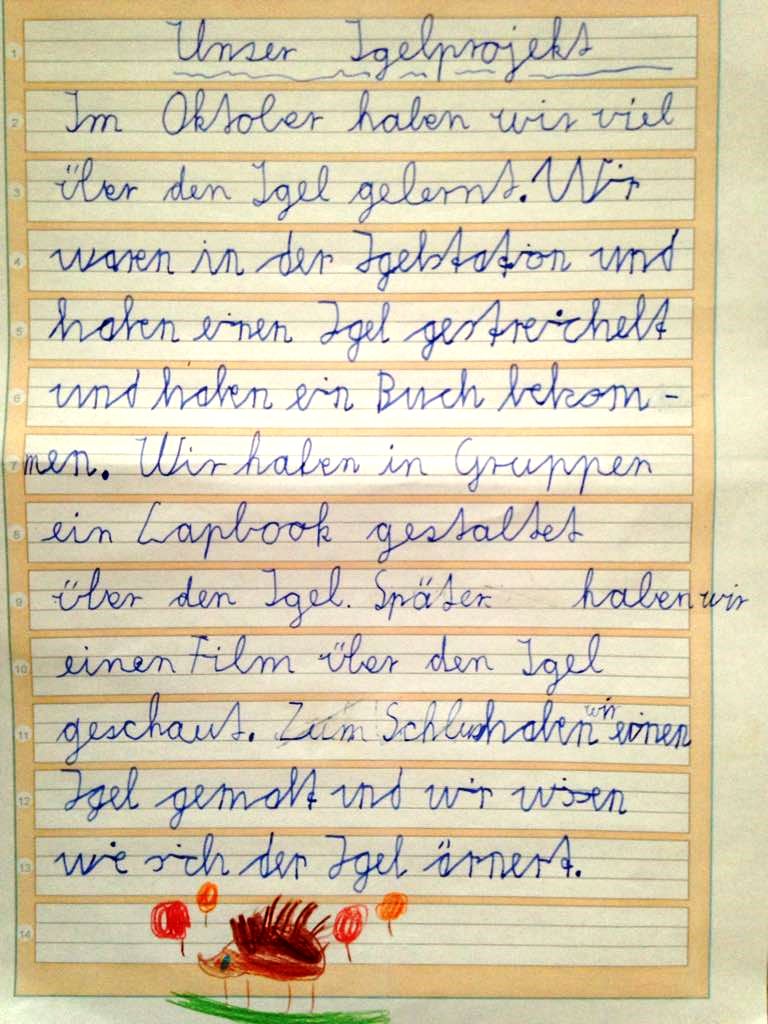 Unser Igelprojekt
Im Oktober haben wir viel
über den Igel gelernt. Wir
waren in der Igelstation und
haben einen Igel gestreichelt
und haben ein Buch bekom-
men. Wir haben in Gruppen
ein Lapbook gestaltet
über den Igel. Später haben wir
einen Film über den Igel
geschaut. Zum Schluss haben wir einen
Igel gemalt und wir wissen
wie sich der Igel ärnert.